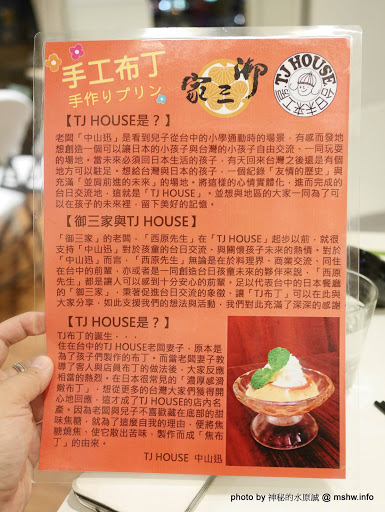 手工布丁
手作りプリン
御三家
TJ HOUSE
台日未来工房
【TJ HOUSE是？】
老闆「中山迅」是看到兒子從台中的小學通勤時的場景，有感而發地
想創造一個可以讓日本的小孩子與台灣的小孩子自由交流、一同玩耍
的場地。當未來必須回日本生活的孩子，有天回來台灣之後還是有個
地方可以駐足。想給台灣與日本的孩子，一個紀錄「友情的歷史」與
充滿「並肩前進的未來」的場地。將這樣的心情實體化，進而完成的
台日交流地，這就是「TJ HOUSE」。並想與地區的大家一同為了可以
在孩子的未來裡，留下美好的記憶。
【御三家與TJ HOUSE】
「御三家」的老闆，「西原先生」在「TJ HOUSE」起步以前，就很
支持「中山迅」對於孩童的台日交流、與關懷孩子未來的熱情。對於
「中山迅」而言，「西原先生」無論是在於料理界、商業交流、同住
在台中的前輩，亦或者是一同創造台日孩童未來的夥伴來說，「西原
先生」都是讓人可以感到十分安心的前輩。足以代表台中的日本餐廳
的「御三家」，秉著促進台日交流的象徵，讓「TJ布丁」可以在此與
大家分享，如此支援我們的想法與活動，我們對此充滿了深深的感謝
【TJ HOUSE是？】
TJ布丁的誕生．．．
住在台中的TJ HOUSE老闆妻子，原本是
為了孩子們製作的布丁。而當老闆妻子教
導了客人與店員布丁的做法後，大家反應
相當的熱烈。在日本很常見的「濃厚感滑
緻布丁」，想從更多的台灣大家們獲得開
心地回應，這才成了TJ HOUSE的店內名
產。因為老闆與兒子不喜歡藏在底部的甜
味焦糖，就為了這麼自我的理由，便將焦
糖燒焦、使它散出苦味，製作而成「焦布
丁」的由來。
TJ HOUSE 中山迅
photo by 神秘的水原誠 @ mshw.info